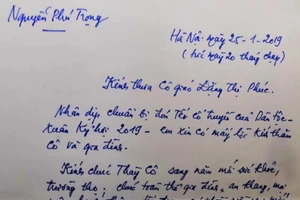 Nguyễn Phú Trọng
Hà Nội ngày 25-1-2019
(tức ngày 20 tháng chạp)
Kính thưa Cô giáo Đặng Thị Phúc.
Nhân dịp chuẩn bị đón Tết cổ truyền của Dân tộc
Xuân Kỷ hợi 2019 - em xin có mấy lời kính thăm
Cô và gia đình.
Kính chúc Thầy Cô sang năm mới sức khỏe,
trường thọ; chúc toàn thể gia đình, an khang, mọi